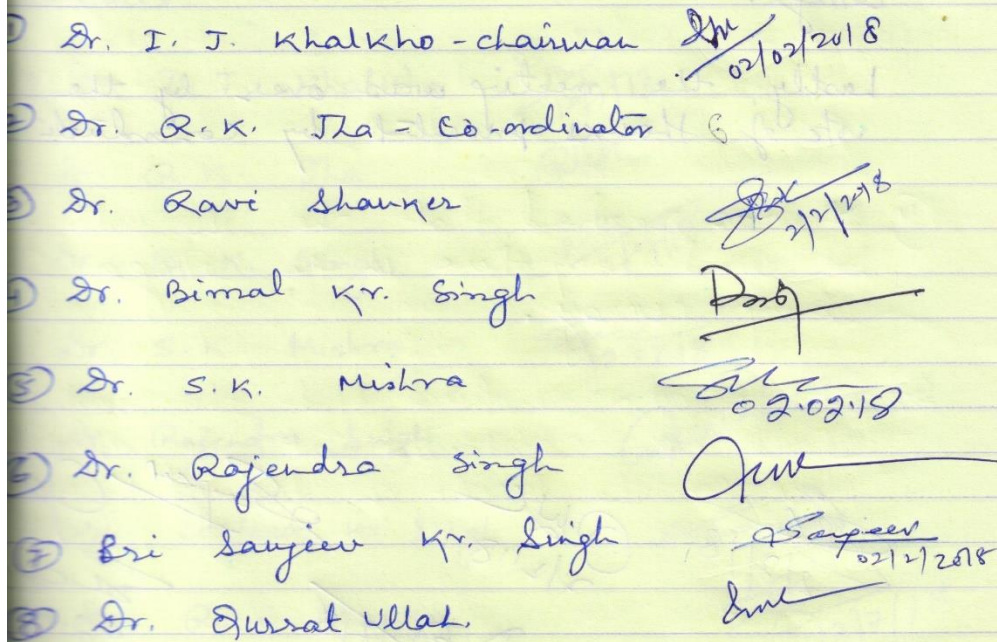 1 Dr. I. J. Khalkho - chairman 02/02/2018
2 Dr. R. K. Jha - Co-ordinator 6
3 Dr. Ravi Shanker 2/2/2018
4 Dr. Bimal Kr. Singh
5 Dr. S. K. Mishra 02.02.18
6 Dr. Rajendra Singh
7 Sri Sanjeev Kr. Singh Sanjeev 02/2/2018
8 Dr. Qussat Ullah.